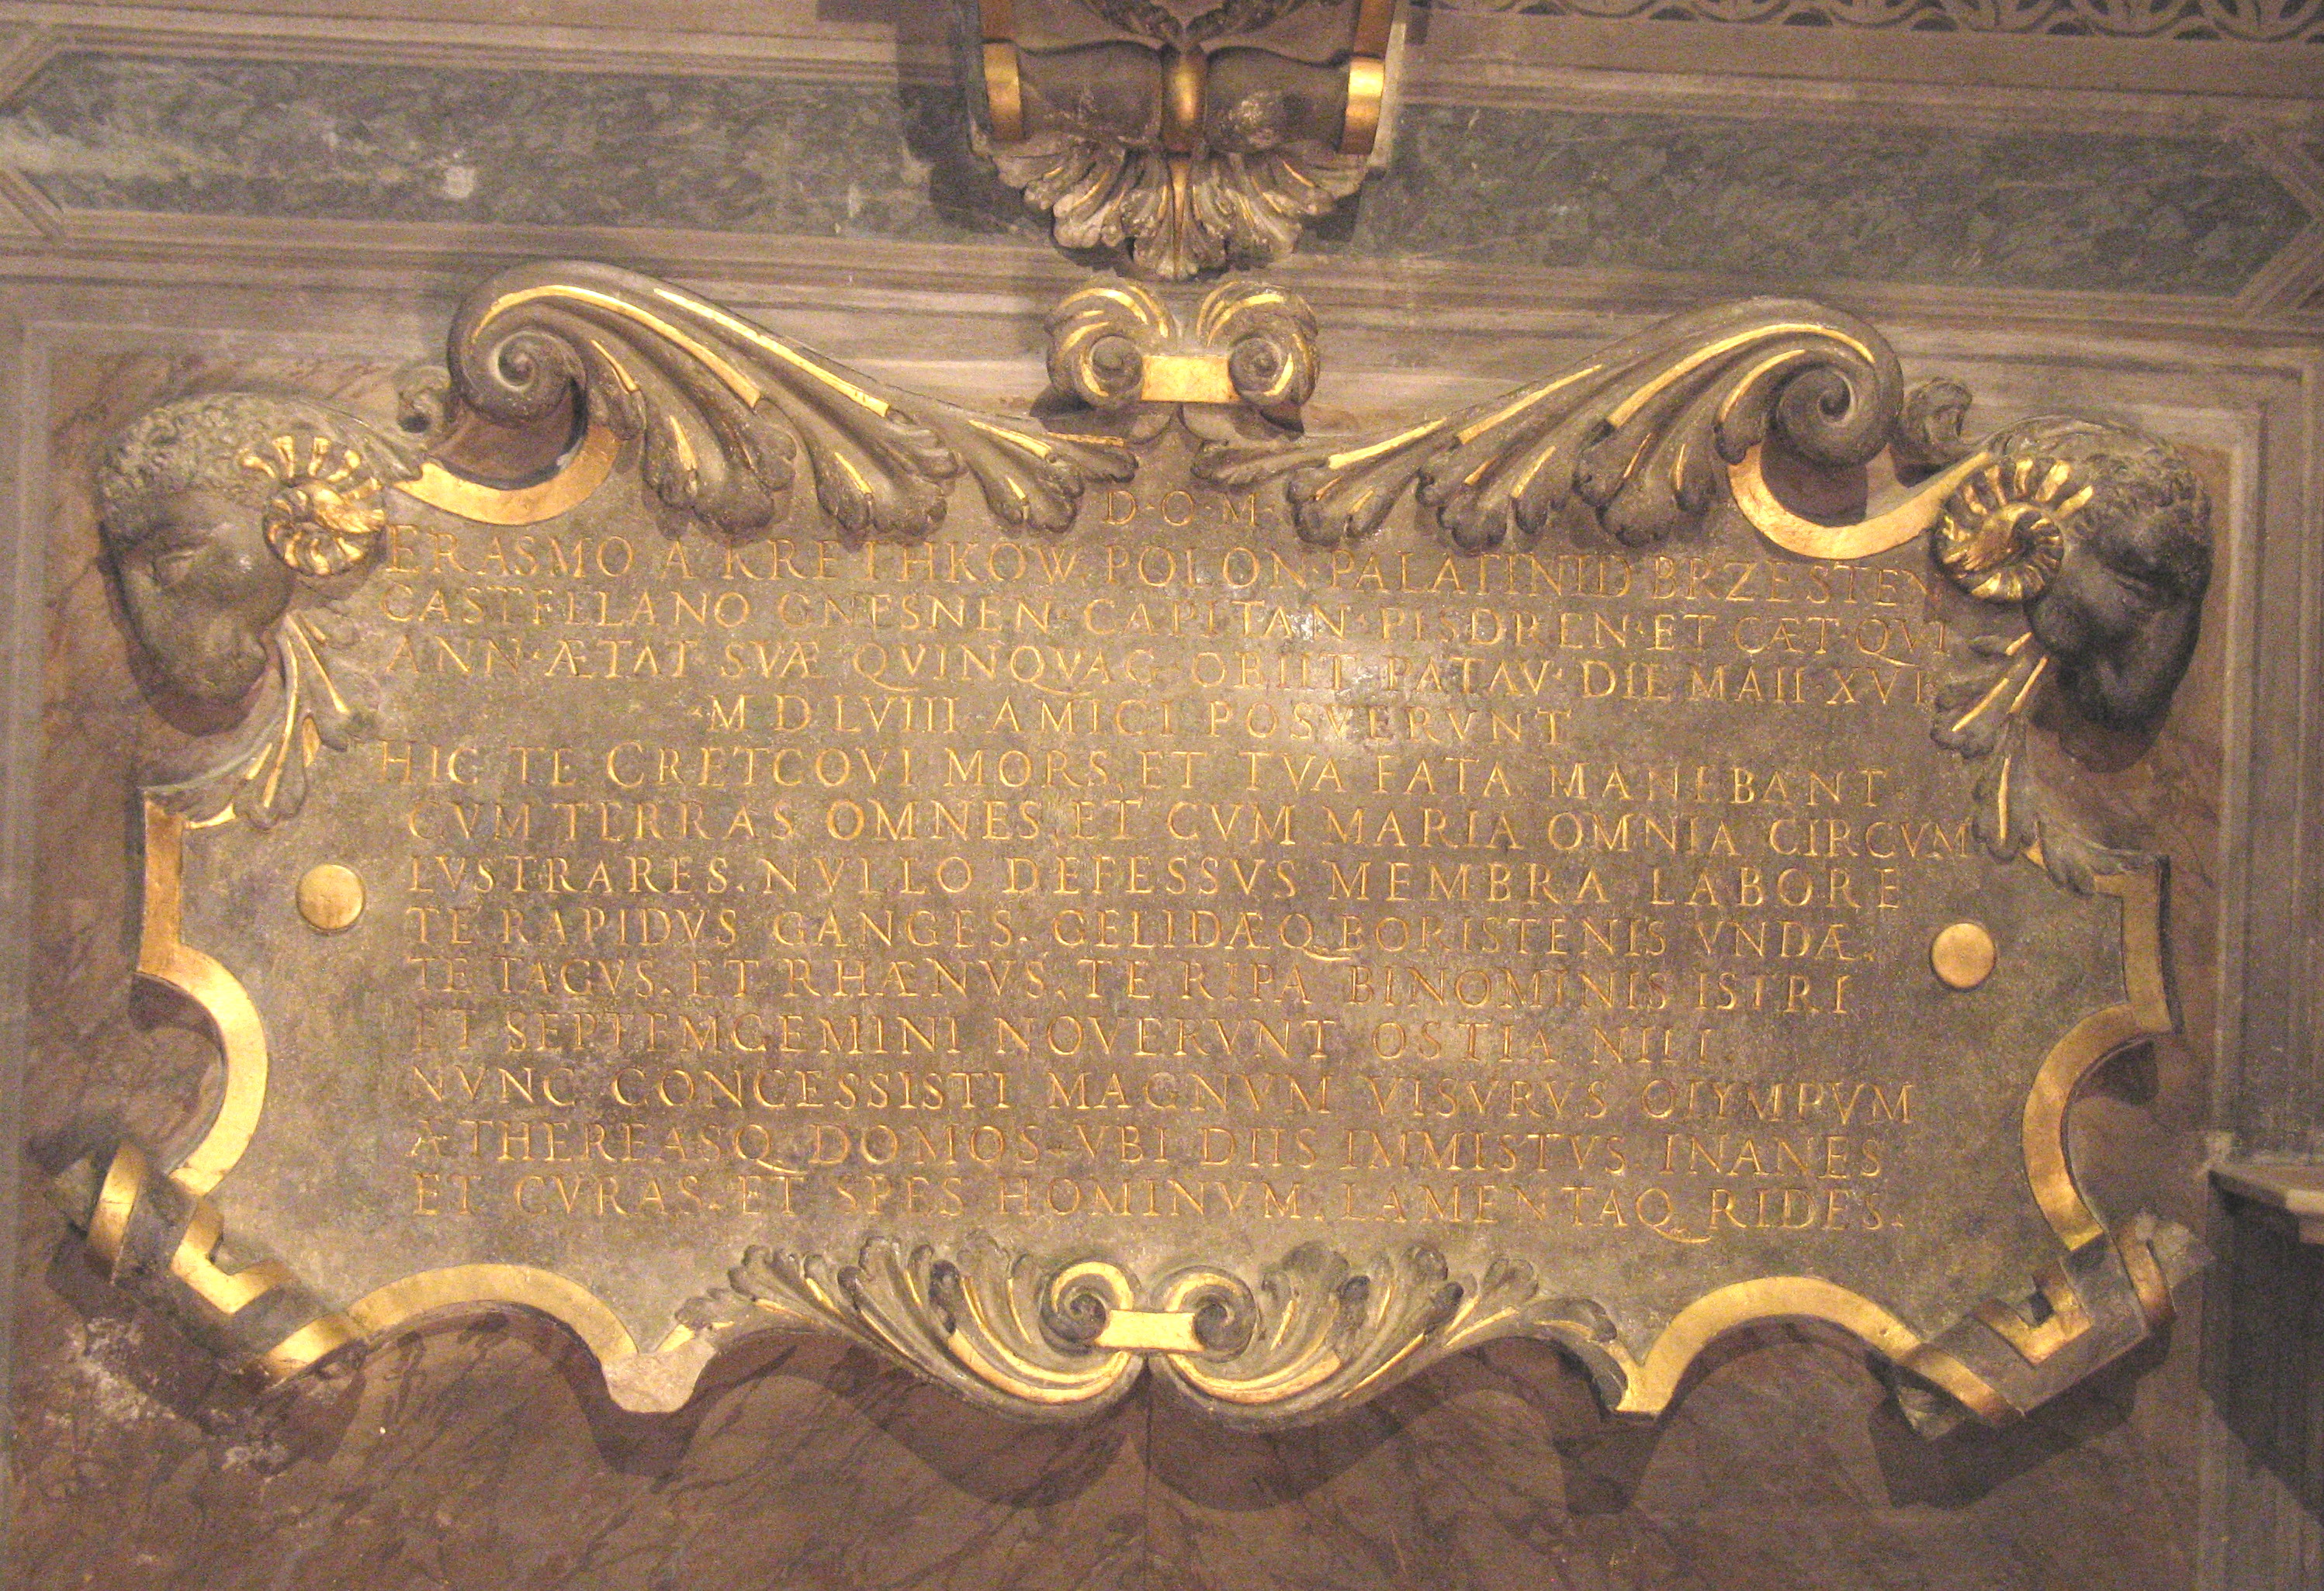 D·O·M·
ERASMO A KRETHKOW POLON·PALATINID BRZESTEN
CASTELLANO GNESNEN·CAPITAN·PISDREN·ET CÆT·QVI
ANN·ÆTAT SVÆ QVINQVAG·OBIIT PATAV·DIE MAII·XVI
·M D LVIII AMICI POSVERVNT
HIC TE CRETCOVI MORS, ET TVA FATA MANEBANT
CVM TERRAS OMNES, ET CVM MARIA OMNIA CIRCVM
LVSTRARES. NVLLO DEFESSVS MEMBRA LABORE
TE RAPIDVS GANGES. GELIDÆQ BORISTENIS VNDÆ.
TE TAGVS. ET RHÆNVS. TE RIPA BINOMINIS ISTRI
ET SEPTEMGEMINI NOVERVNT OSTIA NILI.
NVNC CONCESSISTI MAGNVM VISVRVS OLYMPVM
ÆTHEREASQ DOMOS. VBI DIIS IMMISTVS INANES
ET CVRAS. ET SPES HOMINVM. LAMENTAQ RIDES.